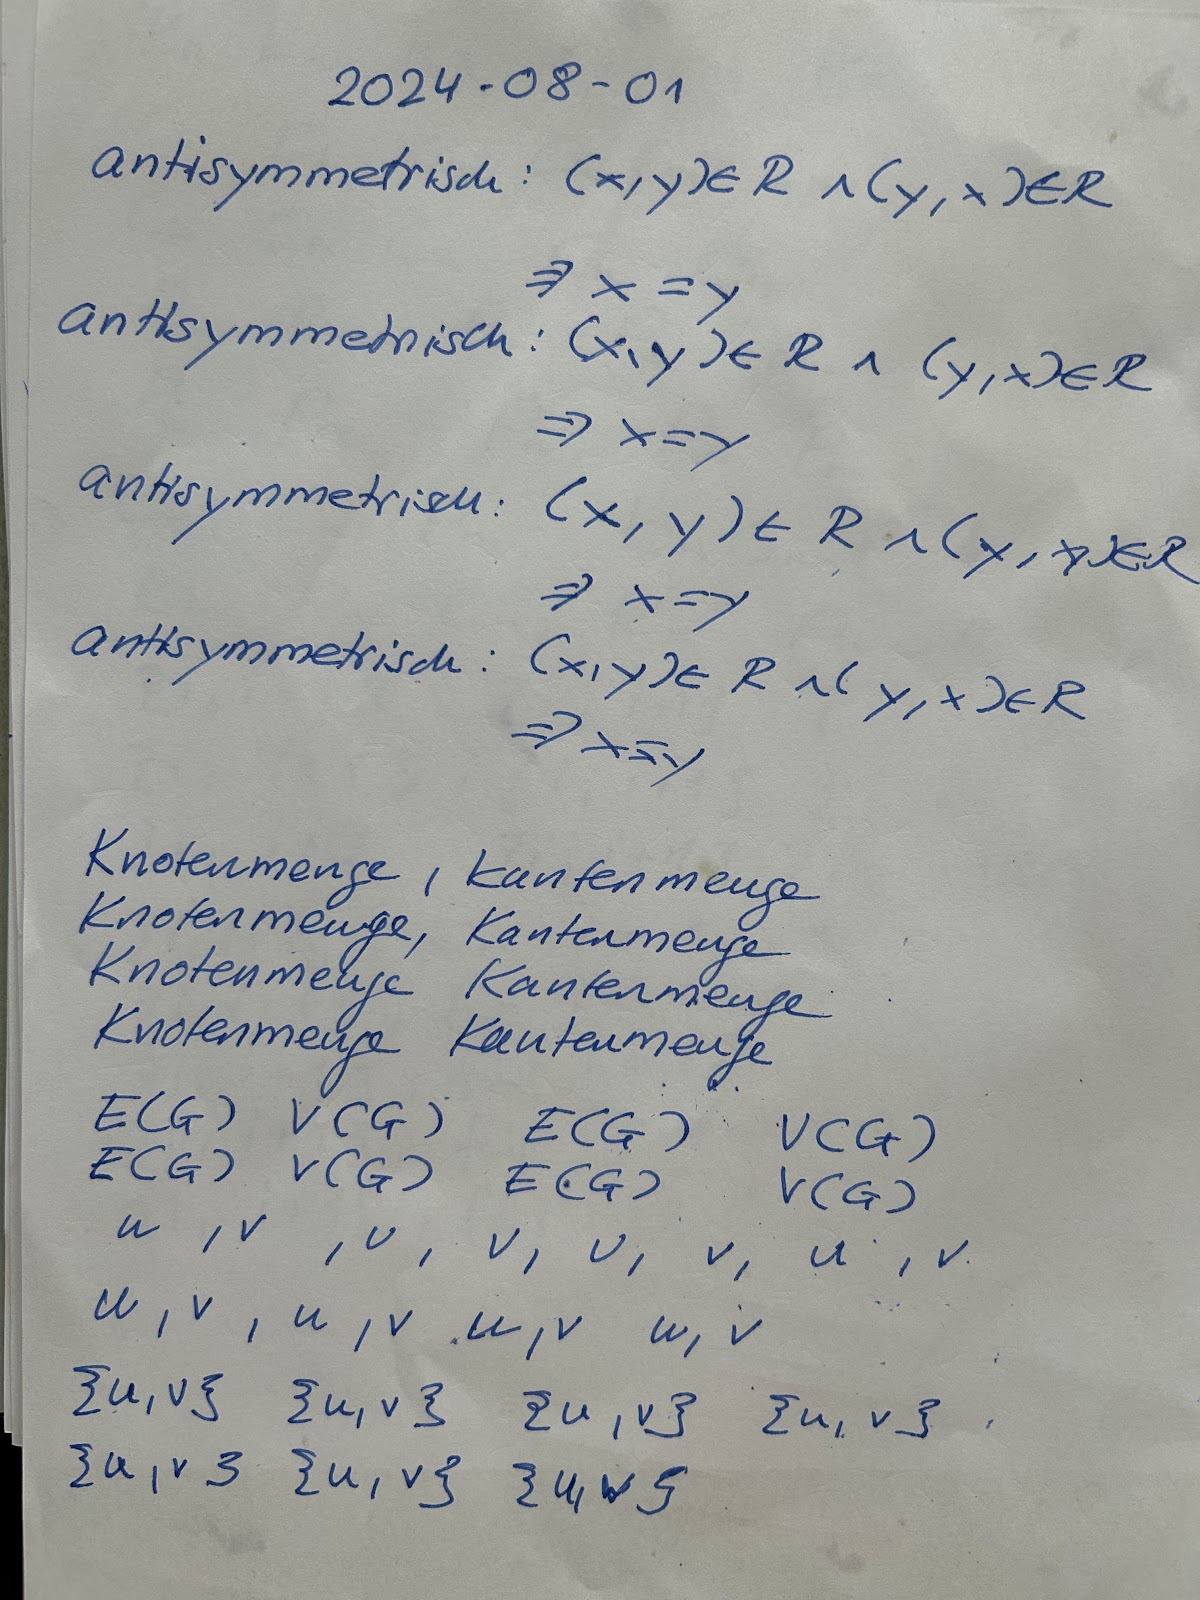 2024-08-01
antisymmetrisch: (x,y)∈R ∧(y,x)∈R
⇒ x=y
antisymmetrisch: (x,y)∈R ∧ (y,x)∈R
⇒ x=y
antisymmetrisch: (x,y)∈ R ∧(y,x)∈R
⇒ x=y
antisymmetrisch: (x,y)∈ R ∧(y,x)∈R
⇒ x=y
Knotenmenge, Kantenmenge
Knotenmenge, Kantenmenge
Knotenmenge Kantenmenge
Knotenmenge Kantenmenge
E(G) V(G) E(G) V(G)
E(G) V(G) E(G) V(G)
u ,v ,u, v, u, v, u , v
u, v, u, v u, v u, v
{u,v} {u,v} {u,v} {u,v}
{u,v} {u,v} {u,v}